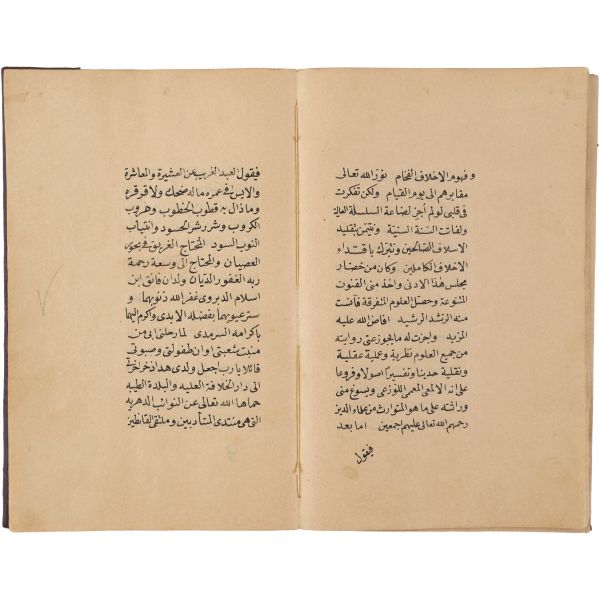 و فهوم الاخلاف الفخام نور الله تعالى
مقابرهم الى يوم القيام ولكن تفكرت
فى قلبى لو لم اجز لضاعة السلسلة العالية
ولفات السنة السنية وتيمن بتقليد
الاسلاف الصالحين وتبرك باقتداء
الاخلاف الكاملين وكان من حضار
مجلس هذا الادنى واخذ منى الفنون
المتنوعة وحصل العلوم المتفرقة فاضت
منه الرشد الرشيد افاض الله عليه
المزيد واجزت له ما يجوز عنى روايته
من جميع العلوم نظرية وعملية عقلية
ونقلية حديثا وتفسيرا اصولا وفروعا
على انه الالمعى المعمى اللوزعى ويسوغ منى
وراثته على ما هو المتوارث من عظماء الدين
رحمهم الله تعالى عليهم اجمعين اما بعد
فيقول
فيقول العبد الغريب عن العشيرة والعاشرة
والايس فى عمره ماله ضحك ولا قرقره
وماذال به قطوب الخطوب وهروب
الكروب وشرر شر الحسود وانتياب
النوب السود المحتاج الغريق فى بحور
العصيان والمحتاج الى وسعة رحمة
ربه الغفور الديان ولدان فائق ابن
اسلام الدبروى غفر الله ذنوبهما و
ستر عيوبهما بفضله الابدى واكرم اليهما
باكرامه السرمدى لما رحلنى ابى من
منبت شعبتى اوان طفولتى وصبوتى
قائلا يا رب اجعل ولدى هذا ذخرا لآخرتى
الى دار الخلافة العليه والبلدة الطيبه
حماها الله تعالى عن النوائب الدهريه
التى هى منتدى المتأدبين وملتقى القانطين